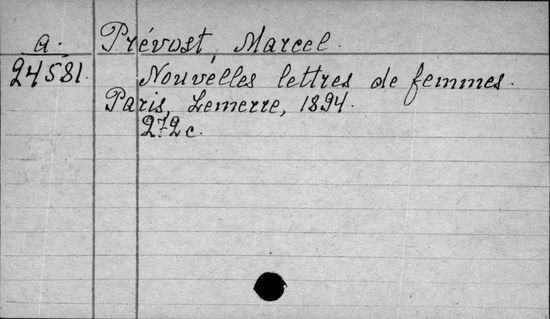 a. Prévost, Marcel.
24581. Nouvelles lettres de femmes.
Paris, Lemerre, 1894.
272 c.